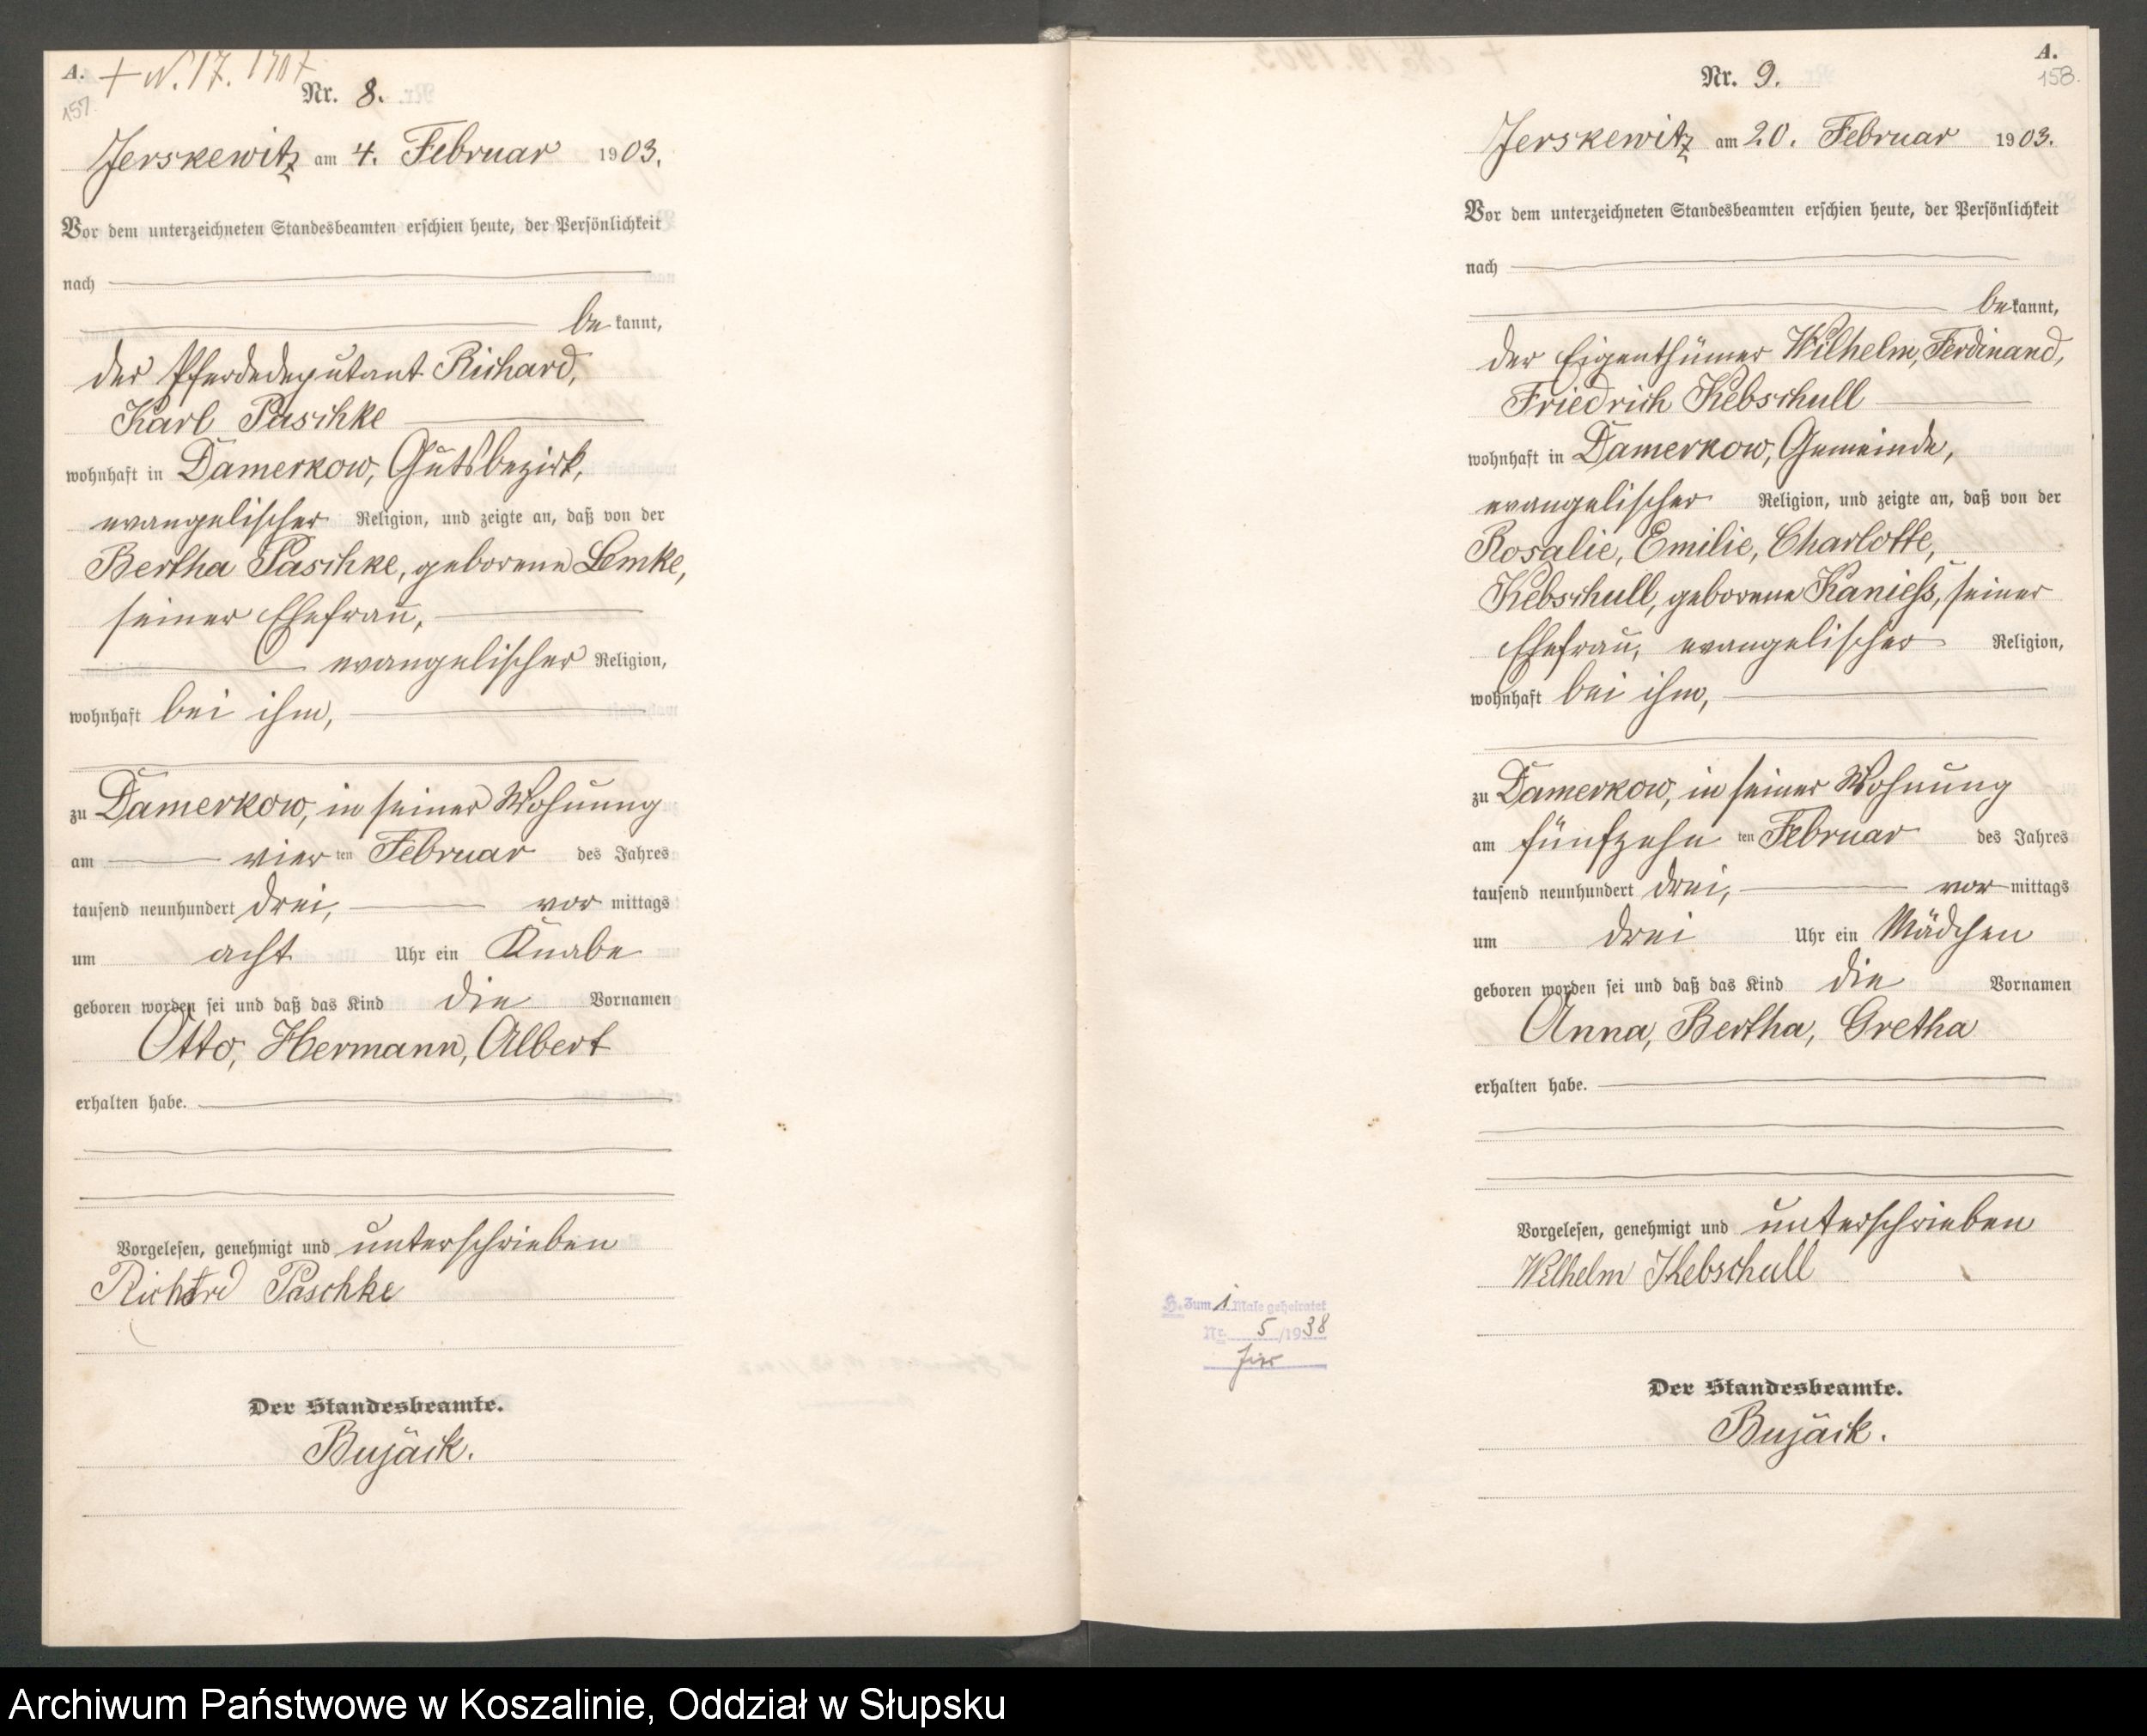 A.
+ N. 17. 1907
157.
Nr. 8.
Jerskewitz am 4. Februar 1903.
Vor dem unterzeichneten Standesbeamten erschien heute, der Persönlichkeit
nach
be kannt,
der Pferdedeputant Richard,
Karl Paschke
wohnhaft in Damerkow, Gutsbezirk,
evangelischer Religion, und zeigte an, daß von der
Bertha Paschke, geborene Lemke,
seiner Ehefrau,
evangelischer Religion,
wohnhaft bei ihm,
zu Damerkow, in seiner Wohnung
am vier ten Februar des Jahres
tausend neunhundert drei, vor mittags
um acht Uhr ein Knabe
geboren worden sei und daß das Kind die Vornamen
Otto, Hermann, Albert
erhalten habe.
Vorgelesen, genehmigt und unterschrieben
Richard Paschke
Der Standesbeamte.
Bujäck.
A.
158.
Nr. 9.
Jerskewitz am 20. Februar 1903.
Vor dem unterzeichneten Standesbeamten erschien heute, der Persönlichkeit
nach
bekannt,
der Eigenthümer Wilhelm, Ferdinand,
Friedrich Kebschull
wohnhaft in Damerkow, Gemeinde,
evangelischer Religion, und zeigte an, daß von der
Rosalie, Emilie, Charlotte,
Kebschull, geborene Kaniess, seiner
Ehefrau, evangelischer Religion,
wohnhaft bei ihm,
zu Damerkow, in seiner Wohnung
am fünfzehn ten Februar des Jahres
tausend neunhundert drei, vor mittags
um drei Uhr ein Mädchen
geboren worden sei und daß das Kind die Vornamen
Anna, Bertha, Gretha
erhalten habe.
Vorgelesen, genehmigt und unterschrieben
Wilhelm Kebschull
H. Zum 1 Male geheiratet
Nr. 5/1938
Der Standesbeamte.
Bujäck.
Archiwum Państwowe w Koszalinie, Oddział w Słupsku